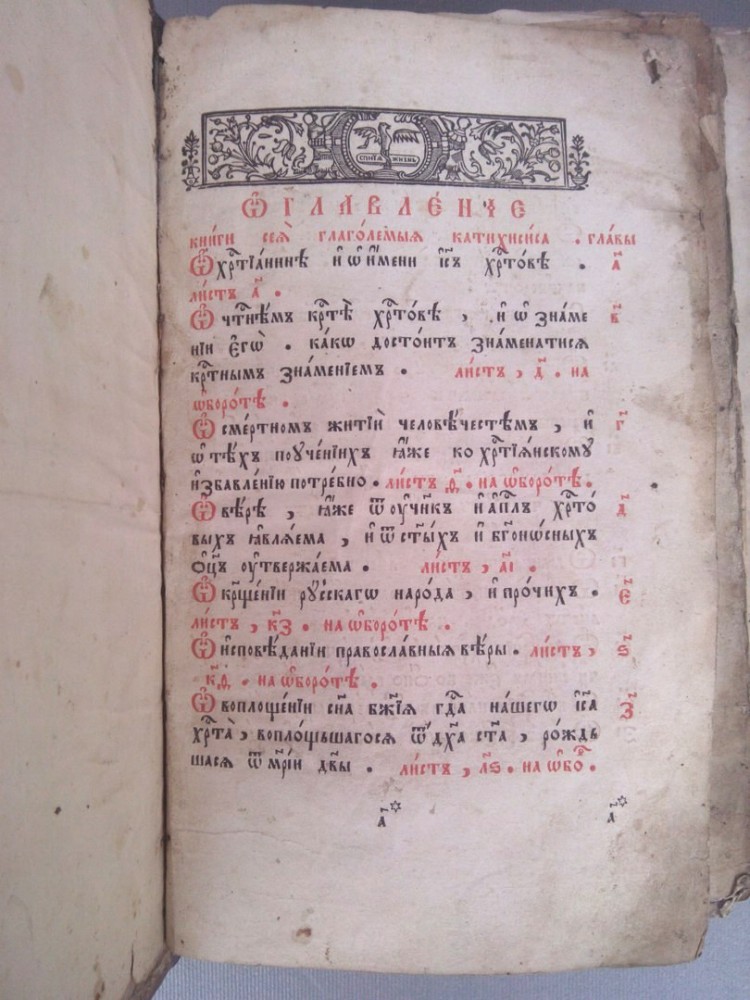 ѾГЛАВЛЕ́НЇЕ
кни́ги сеѧ̀ глаго́лемыѧ катихи́сиса . главы
Ѽ хрⷭ҇тїа́нинѣ и҆ ѡ҆ и҆́мени і҆с҃ъ хрⷭ҇то́вѣ . а҃
ли́стъ а҃ .
Ѽ чⷭ҇тнѣ́мъ крⷭ҇тѣ̀ хрⷭ҇то́вѣ , и҆ ѡ҆ зна́ме в҃
нїи є҆гѡ̀ . ка́кѡ досто́итъ зна́менатисѧ
крⷭ҇тнымъ зна́менїемъ . ли́стъ , д҃ . на
ѡ҆боро́тѣ .
Ѽ сме́ртномъ житїѝ человѣ́честѣмъ , и҆ г҃
ѡ҆ тѣ́хъ поуче́нїихъ ꙗ҆́же ко хрⷭ҇тїѧ́нскому
и҆збавле́нїю потре́бно . ли́стъ д҃ . на ѡ҆боро́тѣ .
Ѽ вѣ́рѣ , ꙗ҆́же ѿ оу҆чн҃къ и҆ а҆пⷭ҇лъ хрⷭ҇то́ д҃
выхъ ꙗ҆влѧ́ема , и҆ ѿ ст҃ы́хъ и҆ бг҃онѡ́сныхъ
ѻ҆ц҃ъ оу҆твержа́ема . ли́стъ , а҃і .
Ѽ крⷭ҇ще́нїи ру́сскагѡ наро́да , и҆ про́чихъ . є҃
ли́стъ , к҃з . на ѡ҆боро́тѣ .
Ѽ и҆сповѣ́данїи правосла́вныѧ вѣ́ры . ли́стъ , ѕ҃
к҃д . на ѡ҆боро́тѣ .
Ѽ воплоще́нїи сн҃а бж҃їѧ гдⷭ҇а на́шегѡ і҆с҃а з҃
хрⷭ҇та̀ , вопло́щьшагосѧ ѿ дх҃а ст҃а , ро́ждь
шасѧ ѿ мр҃їи дв҃ы . ли́стъ , л҃ѕ . на ѡ҆бо .
а҃ а҃